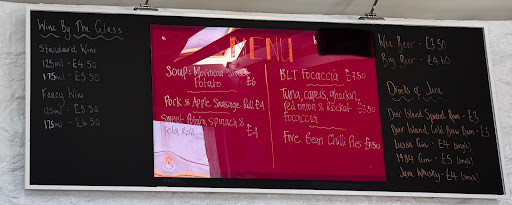 Wine By The Glass
Standard Wine
125ml - £4.50
175ml - £5.50
Fancy Wine
125ml - £5.50
175ml - £6.50
MENU
Soup: Moroccan Sweet
Potato £6
Pork & Apple Sausage Roll £4
Sweet Potato, Spinach &
Feta Roll £4
BLT Focaccia £7.50
Tuna, capers, gherkin,
red onion & Rocket £7.50
focaccia
Five Bean Chilli Pies £7.50
Wee Beer - £3.50
Big Beer - £4.60
Drinks of Jura
Deer Island Spiced Rum - £5
Deer Island Cold Brew Rum - £5
Lussa Gin - £4 (single)
1984 Gin - £5 (single)
Jura Whisky - £4 (single)